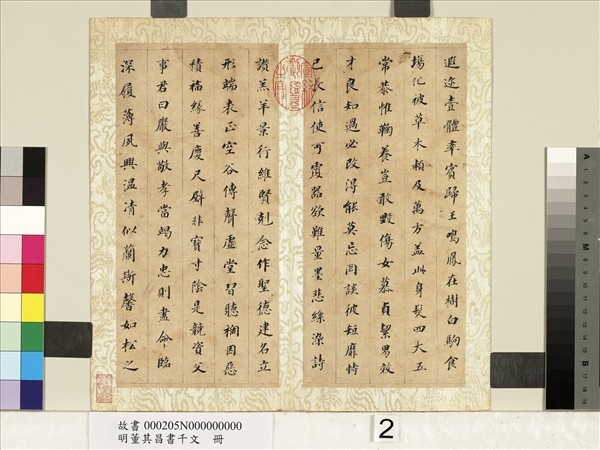 遐迩壹體率賓歸王鳴鳳在樹白駒食
場化被草木賴及萬方盖此身髮四大五
常恭惟鞠養豈敢毀傷女慕貞絜男效
才良知過必改得能莫忘罔談彼短靡恃
己長信使可覆器欲難量墨悲絲染詩
讚羔羊景行維賢剋念作聖德建名立
形端表正空谷傳聲虛堂習聽禍因惡
積福緣善慶尺璧非寶寸陰是競資父
事君曰嚴與敬孝當竭力忠則盡命臨
深履薄夙興溫凊似蘭斯馨如松之
故書 000205N000000000
明董其昌書千文 冊
2